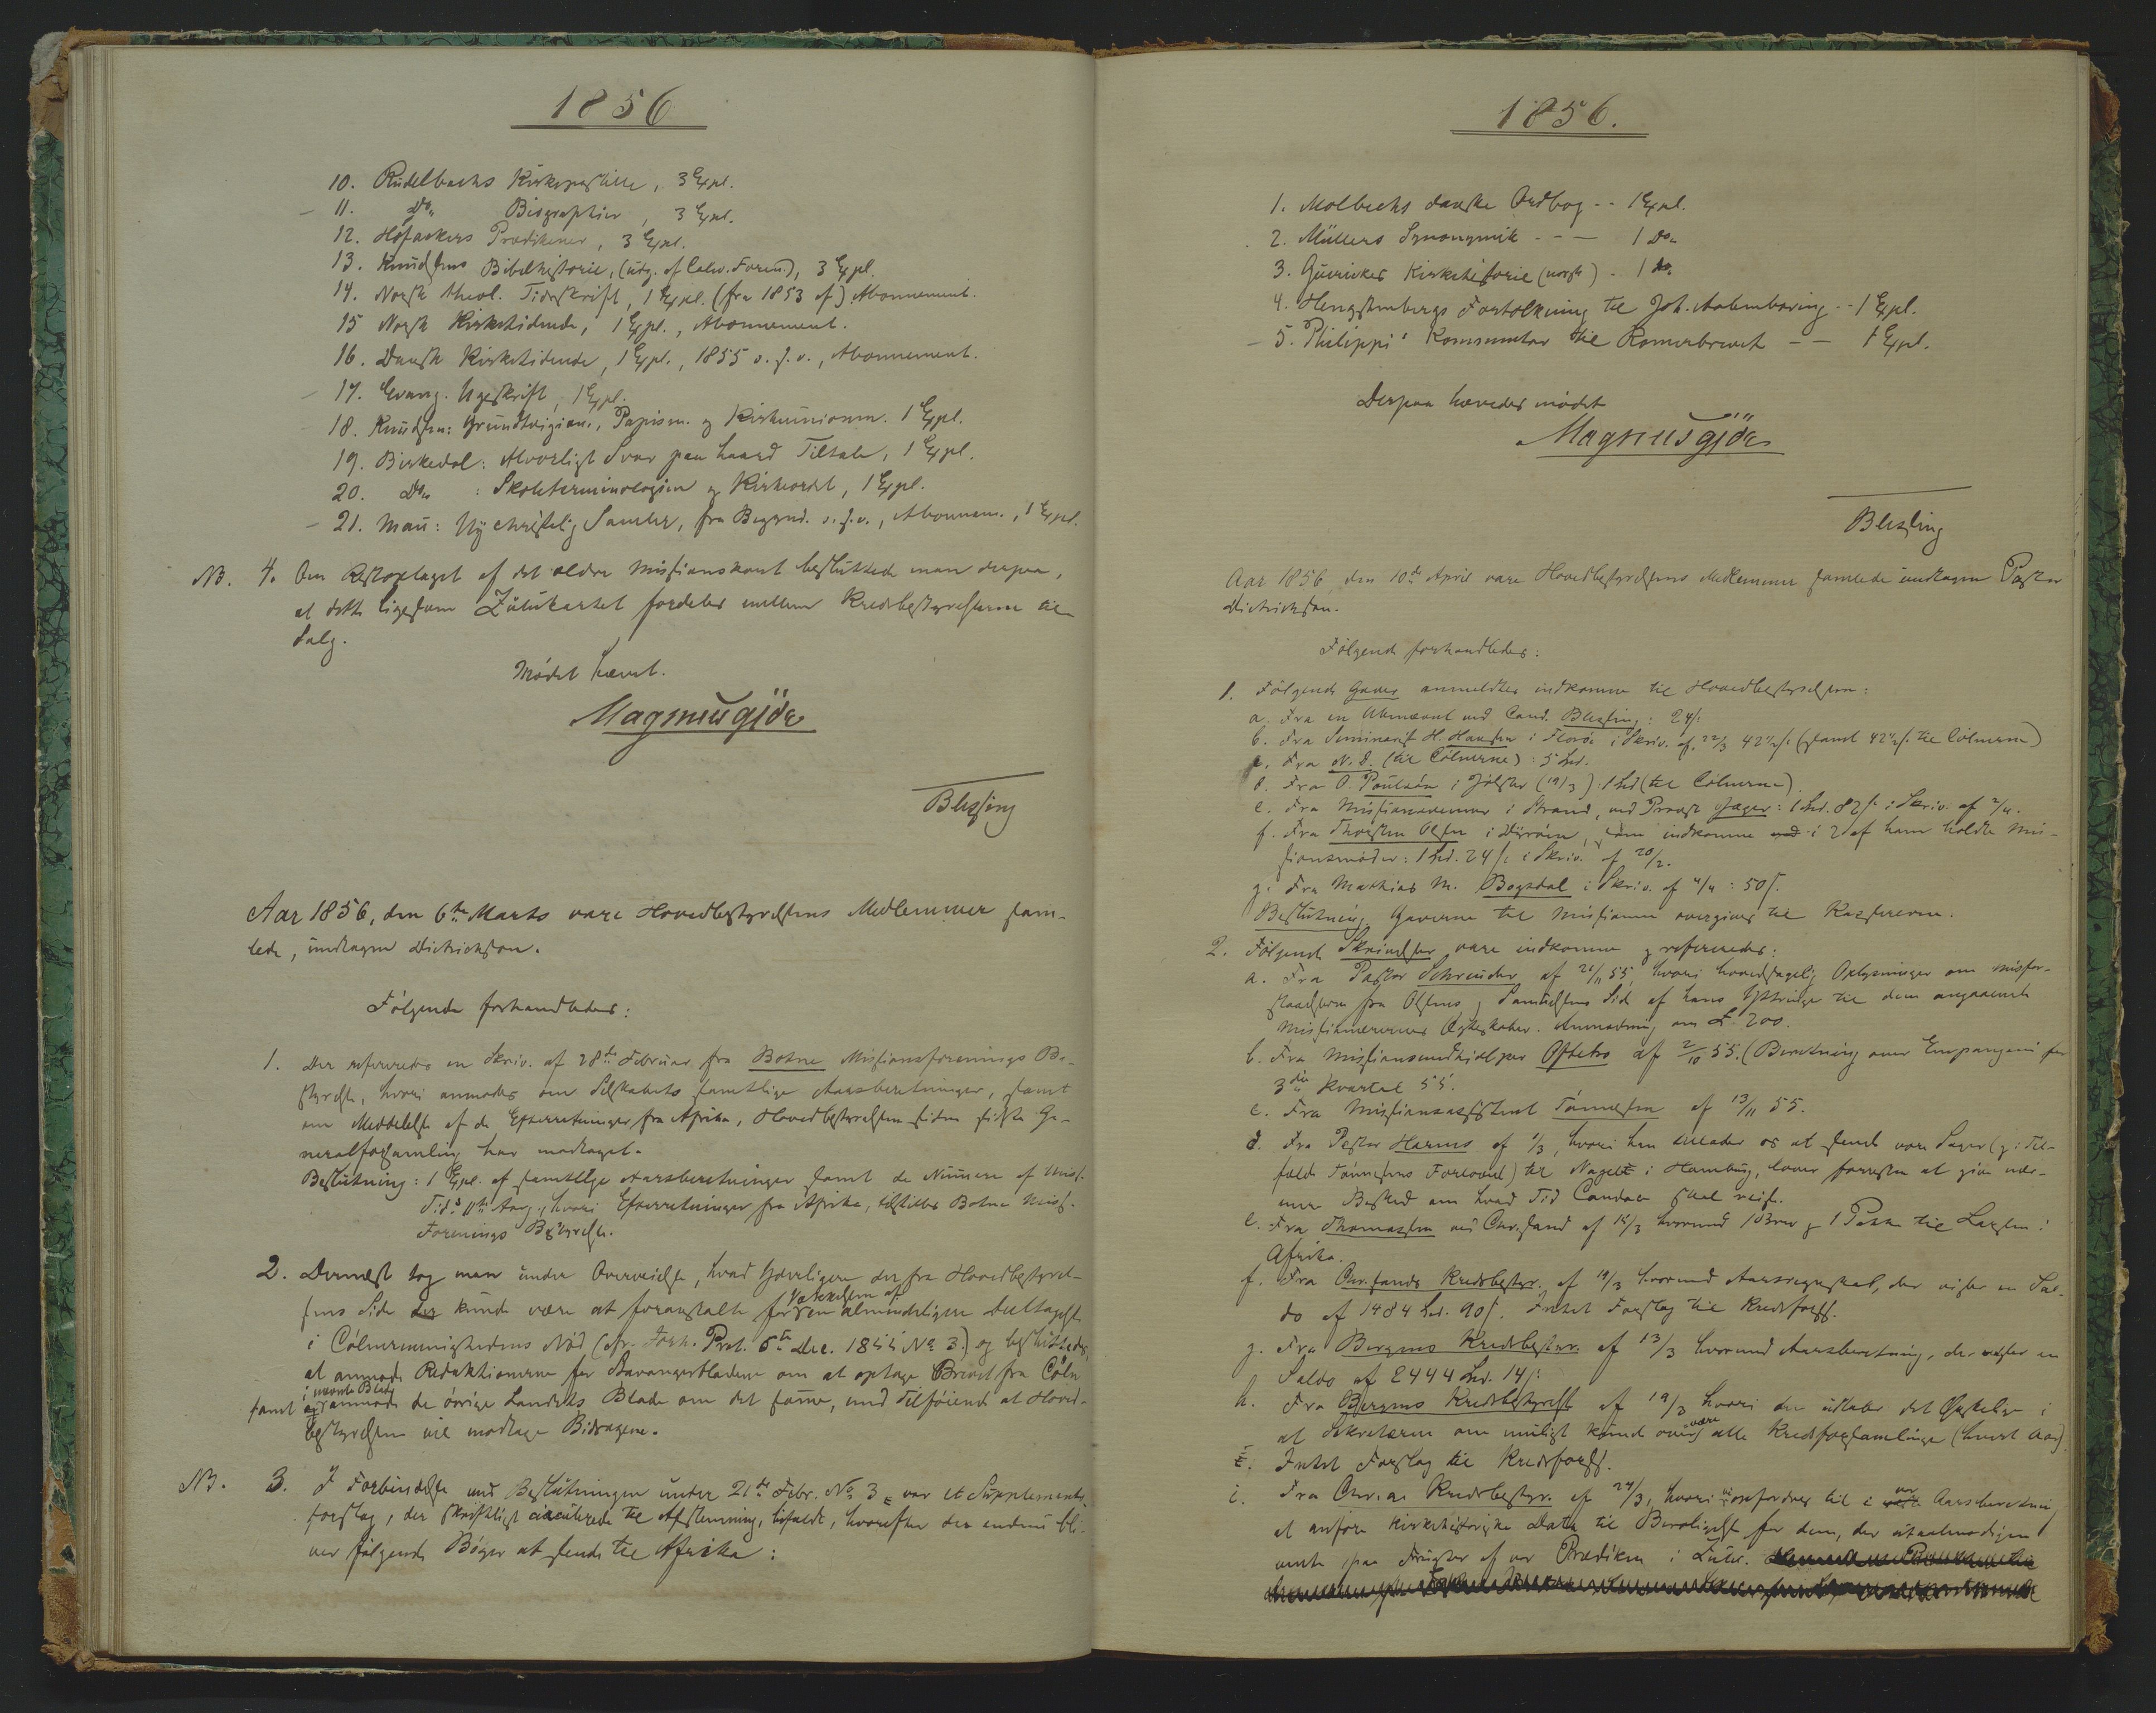 1856
10. Rudelbachs Kirkepostille, 3 Expl.
11. Do. Biographier, 3 Expl.
12. Hofackers Prædikener, 3 Expl.
13. Knudsens Bibelhistorie, (udg. af luth. Foren.), 3 Expl.
14. Norsk theol. Tidsskrift, 1 Expl. (fra 1853 af) Abonnement.
15 Norsk Kirketidende, 1 Expl., Abonnement.
16. Dansk Kirketidende, 1 Expl., 1855 o. s. v., Abonnement.
17. Evang. Ugeskrift, 1 Expl.
18. Knudsen: Grundtvigian., Papism. og Kirkeunionism. 1 Expl.
19. Birkedal: Alvorligt Svar paa haard Tiltale, 1 Expl.
20. Do. : Skoleterminologien og Kirkeordet, 1 Expl.
21. Mau: Ny christelig Samler, fra Begynd. o. s. v., Abonnem., 1 Expl.
NB. 4. Om Restoplaget af det ældre Missionskart besluttede man derpaa,
at dette ligesom Zulukartet fordeles mellem Kredsbestyrelserne til
Salg.
Mødet hævet.
Magnus Gjör
Blessing
Aar 1856, den 6te Marts vare Hovedbestyrelsens Medlemmer sam-
lede, undtagen Dietrichson.
Følgende forhandledes:
1. Der refereredes en Skriv. af 28de Februar fra Botne Missionsforenings Be-
styrelse, hvori anmodes om Selskabets samtlige Aarsberetninger, samt
om Meddelelse af de Efterretninger fra Afrika, Hovedbestyrelsen siden sidste Ge-
neralforsamling har modtaget.
Beslutning: 1 Expl. af samtlige Aarsberetninger samt de Numere af Miss.
Tid.s 11te Aarg., hvori Efterretninger fra Afrika, tilstilles Botne Miss.
Forenings Bestyrelse.
2. Dernæst tog man under Overveielse, hvad Yderligere der fra Hovedbestyrel-
sens Side der kunde være at foranstalte for Vækkelsen af en almindeligere Deltagelse
i Cölnermenighedens Nød (cfr. Forh. Prot. 6te Dec. 1855 No 3.) og besluttedes
at anmode Redaktionerne for Stavangerbladene om at optage Brevet fra Cöln
i nævnte Blade
samt at anmode de øvrige Landets Blade om det samme, med Tilføiende at Hoved-
bestyrelsen vil modtage Bidragene.
NB. 3. I Forbindelse med Beslutningen under 21de Febr. No 3 var et Supplements-
forslag, der skriftligt circulerede til Afstemning, bifaldt, hvorefter der endnu bli-
ver følgende Bøger at sende til Afrika:
1856.
1. Molbechs danske Ordbog -- 1 Expl.
2. Müllers Synonymik --- 1 Do.
3. Guerickes Kirkehistorie (norsk) - 1 do.
4. Hengstenbergs Fortolkning til Joh. Aabenbaring -- 1 Expl.
5. Philippi's Kommentar til Romerbrevet -- 1 Expl.
Derpaa hævedes mødet
Magnus Gjör
Blessing
Aar 1856 den 10de April vare Hovedbestyrelsens Medlemmer samlede undtagen Pastor
Dietrichson.
Følgende forhandledes:
1. Følgende Gaver anmeldtes indkomne til Hovedbestyrelsen:
a. Fra en Unævnt ved Cand. Blessing: 24 s.
b. Fra Seminarist H. Hansen i Florö i Skriv. af 22/3 42½ s. (samt 42½ s. til Cölnerne)
c. Fra N. S. (til Cölnerne): 5 Spd.
d. Fra O. Poulsön i Jölster (19/3): 1 Spd (til Cölnerne).
e. Fra Missionsvenner i Strand, ved Provst Jæger: 1 Spd. 82 s. i Skriv. af 2/4.
f. Fra Thorsten Olsen i Dyröen, som indkomne i 2 af ham holdte Mis-
sionsmøder: 1 Spd. 24 s. i Skriv. af 20/2.
g. Fra Mathias M. Bogsdal i Skriv. af 4/4: 50 s.
Beslutning. Gaverne til Missionen overgives til Kassereren.
2. Følgende Skrivelser vare indkomne og refereredes:
a. Fra Pastor Schreuder af 21/11 55, hvori hovedsagelig Oplysninger om misfor-
staaelserne fra Olsens og Samuelsens Side af hans Yttringer til dem angaaende
Missionærernes Ægteskaber. Anmodning om £ 200.
b. Fra Missionsmedhjelper Oftebro af 2/10 55. (Beretning om Empangeni for
3die Kvartal 55.
c. Fra Missionsassistent Tönnesen af 13/11 55.
d. Fra Pastor Harms af 1/3, hvori han tillader os at sende vore Sager (og: Til-
fælde Tönnesens Forlovede) til Nagel i Hamburg, lover forresten at give nær-
mere Besked om hvad Tid Candace skal reise.
e. Fra Thomassen ved Chr.sand af 15/3 hvormed 1 Brev og 1 Pakke til Larsen i
Afrika.
f. Fra Chr.sands Kredsbestyr. af 19/3 hvormed Aarsregnskab, der viser en Sal-
do af 1484 Spd. 90 s. Intet Forslag til Kredsforss.
g. Fra Bergens Kredsbestyr. af 13/3 hvormed Aarsberetning, der viser en
Saldo af 2444 Spd. 14 s.
h. Fra Bergens Kredsbestyrelse af 19/3 hvori der udtales det Ønskelige i
at Sekretæren om muligt kunde overvære alle Kredsforsamlinger (hvert Aar).
Intet Forslag til Kredsforss.
i. Fra Chr.a. Kredsbestyr. af 24/3, hvori opfordres til i vor Aarsberetning
at anføre kirkehistoriske Data til Beroligelse for dem, der utaalmodigen
vente paa Frugter af vor Prædiken i Zulu.